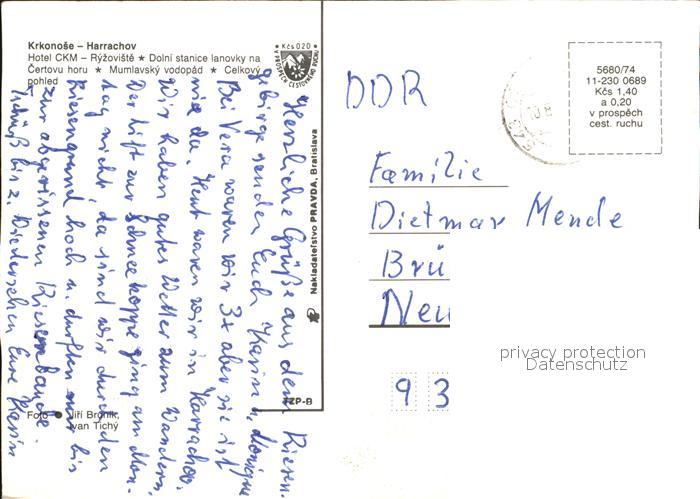 Krkonoše – Harrachov
Hotel CKM – Rýžoviště ★ Dolní stanice lanovky na
Čertovu horu ★ Mumlavský vodopád ★ Celkový
pohled
Kčs 0,20
V PROSPĚCH CESTOVNÉHO RUCHU
Herzliche Grüße aus dem Riesen-
gebirge senden Euch Karin u. Monique
Bei Vera waren wir 3x aber sie ist
nie da. Heut waren wir in Harrachov.
Wir haben gutes Wetter zum Wandern.
Der Lift zur Schneekoppe ging am Mon-
tag nicht, da sind wir durch den
Riesengrund hoch u. durften nur bis
zur abgerissenen Riesenbaude.
Tschüß bis z. Wiedersehen Eure Karin
Nakladateľstvo PRAVDA, Bratislava
TZP-B
Foto Jiří Broník,
Ivan Tichý
5680/74
11-230 0689
Kčs 1,40
a 0,20
v prospěch
cest. ruchu
DDR
Familie
Dietmar Mende
Brü
Neu
privacy protection
Datenschutz
9 3